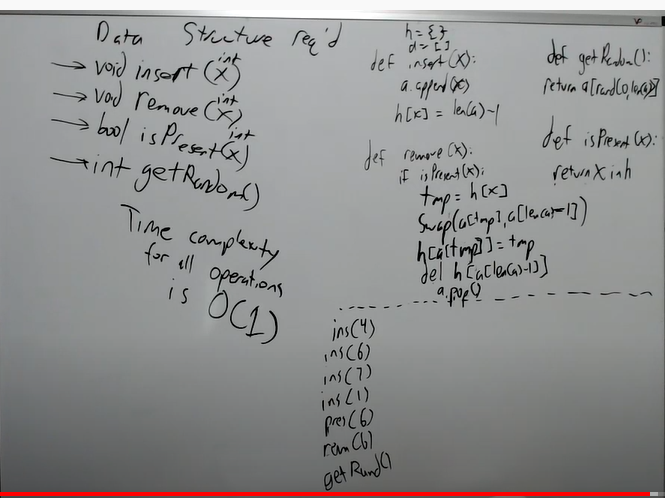 Data Structure req'd
→ void insert(int x)
→ void remove(int x)
→ bool isPresent(int x)
→ int getRandom()
Time complexity
for all operations
is O(1)
h = {}
a = []
def insert(x):
a.append(x)
h[x] = len(a)-1
def remove(x):
if isPresent(x):
tmp = h[x]
swap(a[tmp], a[len(a)-1])
h[a[tmp]] = tmp
del h[a[len(a)-1]]
a.pop()
def getRandom():
return a[rand(0,len(a))]
def isPresent(x):
return x in h
ins(4)
ins(6)
ins(7)
ins(1)
pres(6)
rem(6)
getRand()